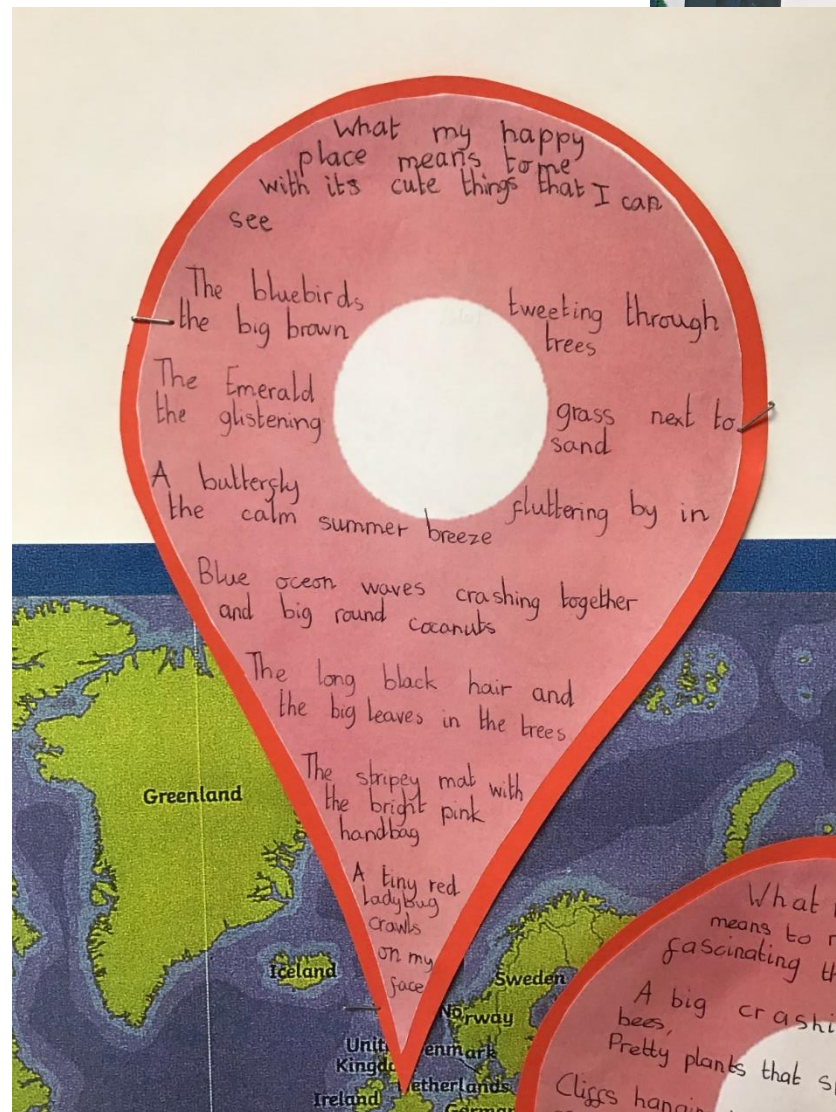 What my happy
place means to me
with its cute things that I can
see
The bluebirds tweeting through
the big brown trees
The Emerald grass next to
the glistening sand
A butterfly fluttering by in
the calm summer breeze
Blue oceon waves crashing together
and big round cocanuts
The long black hair and
the big leaves in the trees
The stripey mat with
the bright pink
handbag
A tiny red
Ladybug
crawls
on my
face
Greenland
Iceland
Sweden
Norway
Kingd
Ireland
What
means to
fascinating
A big crashi
bees,
Pretty plants that
Cliffs hangin